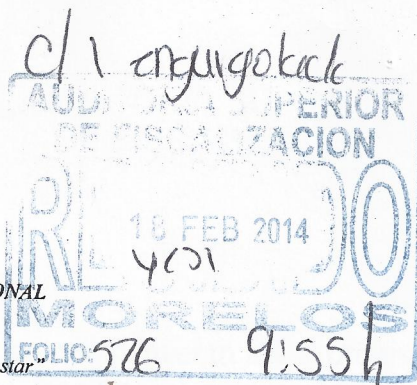 c/ 1 engargolado
AUDITORIA SUPERIOR
DE FISCALIZACION
RECIBIDO
18 FEB 2014
ONAL
MORELOS
FOLIO: 526 9:55 h
star"